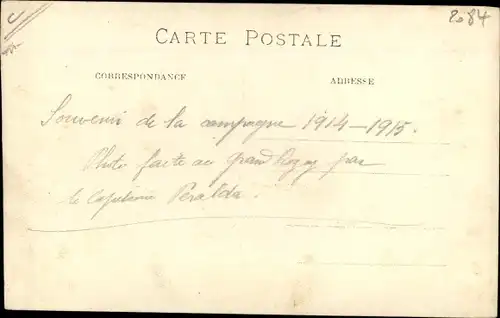 2084
CARTE POSTALE
CORRESPONDANCE
ADRESSE
Souvenir de la campagne 1914-1915.
Photo faite au grand par
le Capitaine Peralda.